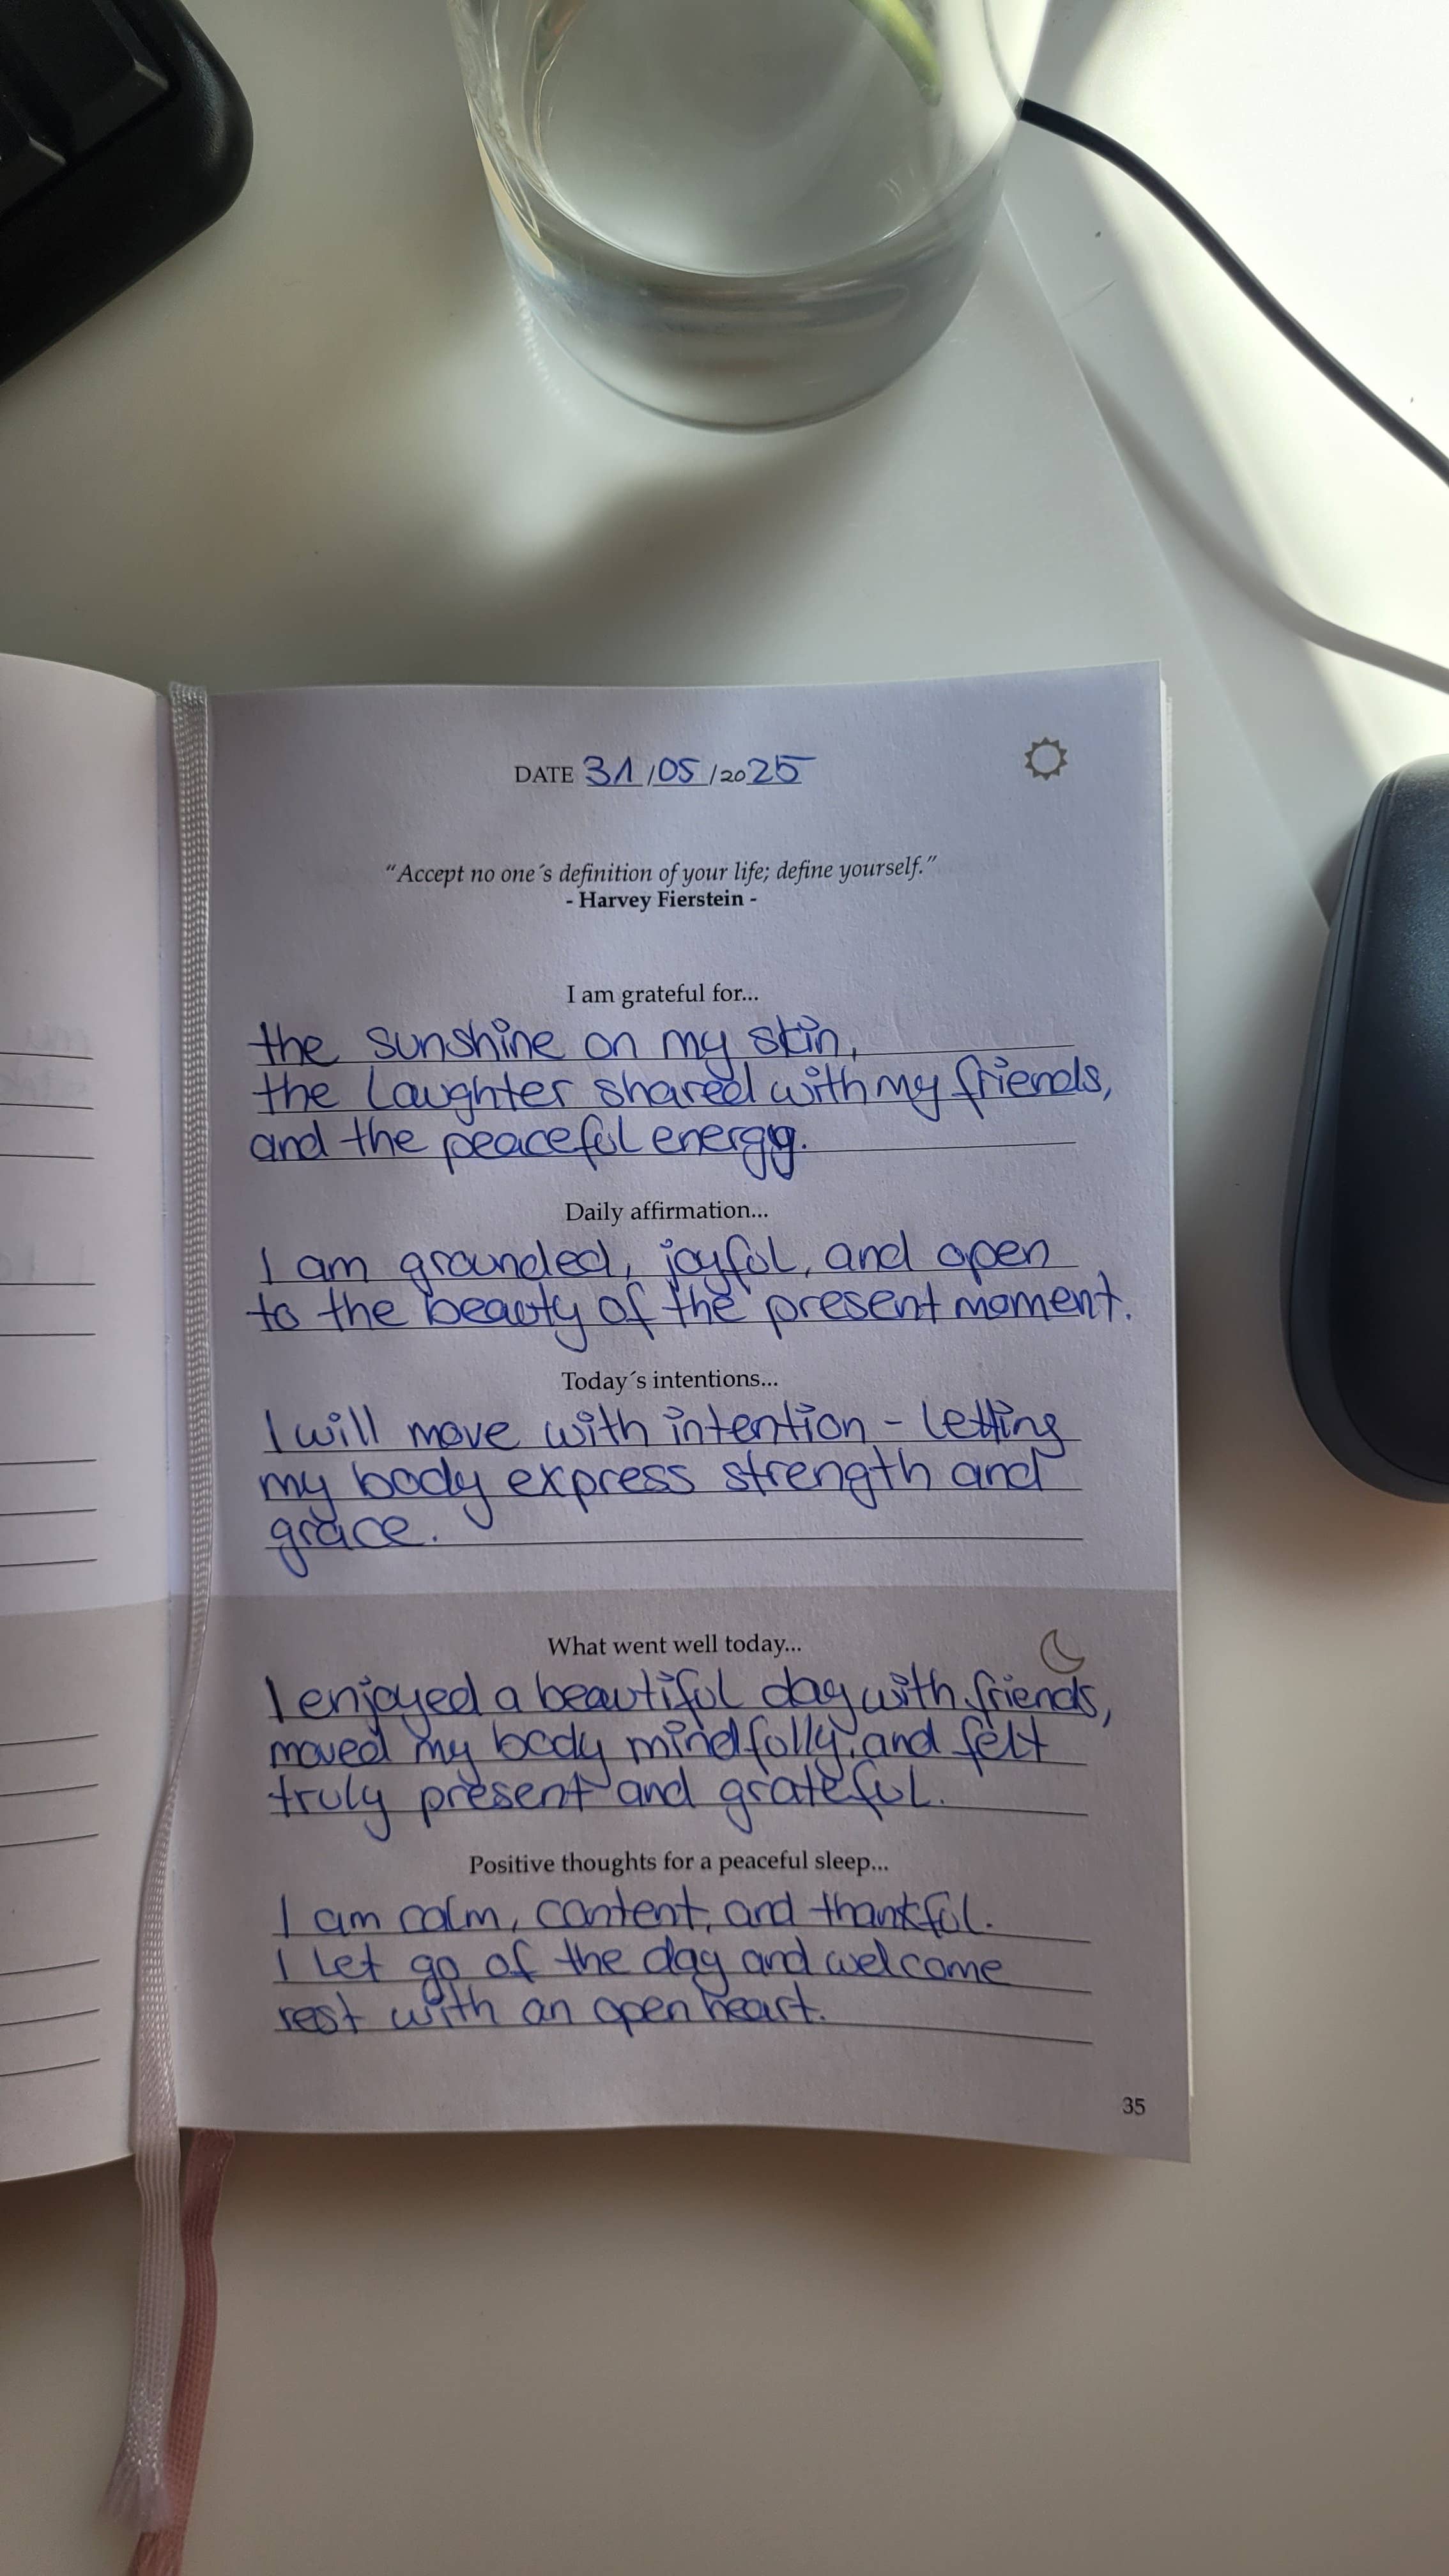 DATE 31/05/2025
“Accept no one´s definition of your life; define yourself.”
- Harvey Fierstein -
I am grateful for...
the sunshine on my skin,
the laughter shared with my friends,
and the peaceful energy.
Daily affirmation...
I am grounded, joyful, and open
to the beauty of the present moment.
Today´s intentions...
I will move with intention – letting
my body express strength and
grace.
What went well today...
I enjoyed a beautiful day with friends,
moved my body mindfully, and felt
truly present and grateful.
Positive thoughts for a peaceful sleep...
I am calm, content, and thankful.
I let go of the day and welcome
rest with an open heart.
35